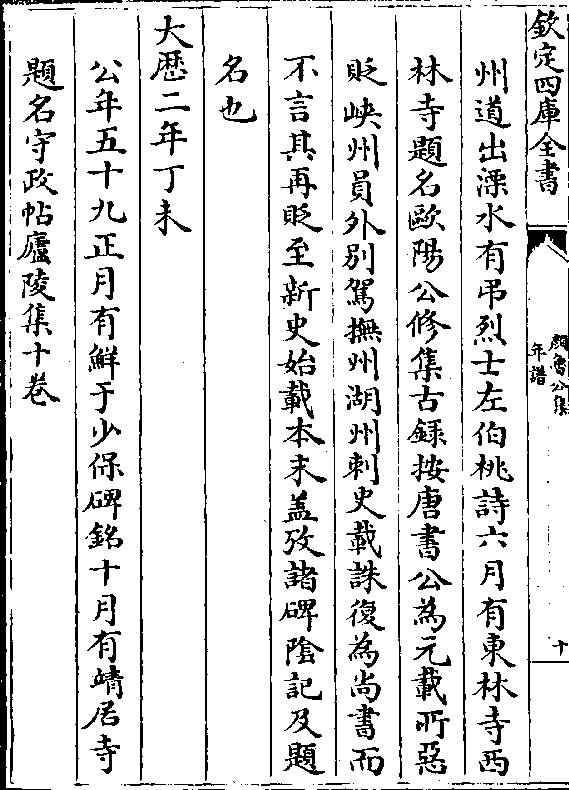 欽定四庫全書
顔魯公集
年譜
十
州道出溧水有弔烈士左伯桃詩六月有東林寺西
林寺題名歐陽公修集古録按唐書公為元載所惡
貶峽州員外别駕撫州湖州刺史載誅復為尚書而
不言其再貶至新史始載本末盖攷諸碑隂記及題
名也
大厯二年丁未
公年五十九正月有鮮于少保碑銘十月有靖居寺
題名守政帖廬陵集十卷